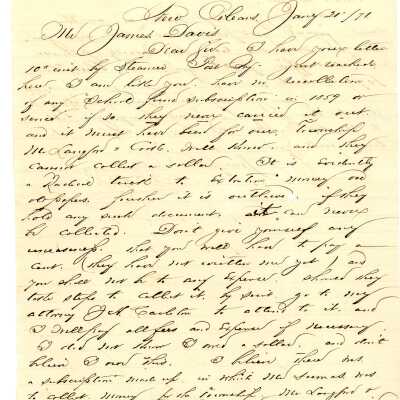 New Orleans, Jany 20th/71
Mr James Davis
Dear Sir. I have your letter
10th inst by Steamer Post Boy. just reached
here. I am like you. have no recollection
of any School fund subscription in 1859 or
since. if so, they never carried it out
and it must have been for our Township
Mr Langford & Cook. will know. and they
cannot collect a dollar. It is evidently
a Radical trick to Extort money
further it is if they
hold any such document, it can never
be collected. Don't give yourself any
uneasiness. that you will have to pay a
cent. they have not written me yet. and
you shall not be to any Expense. should they
take steps to collect it. by suit. go to my
attorney J M Carleton to attend to it. and
I will pay all fees and Expense if necessary.
I did not know I owed a dollar. and don't
believe I owe this. I believe there was
a subscription made up. in which we
to collect money for the Township. Mr Langford &